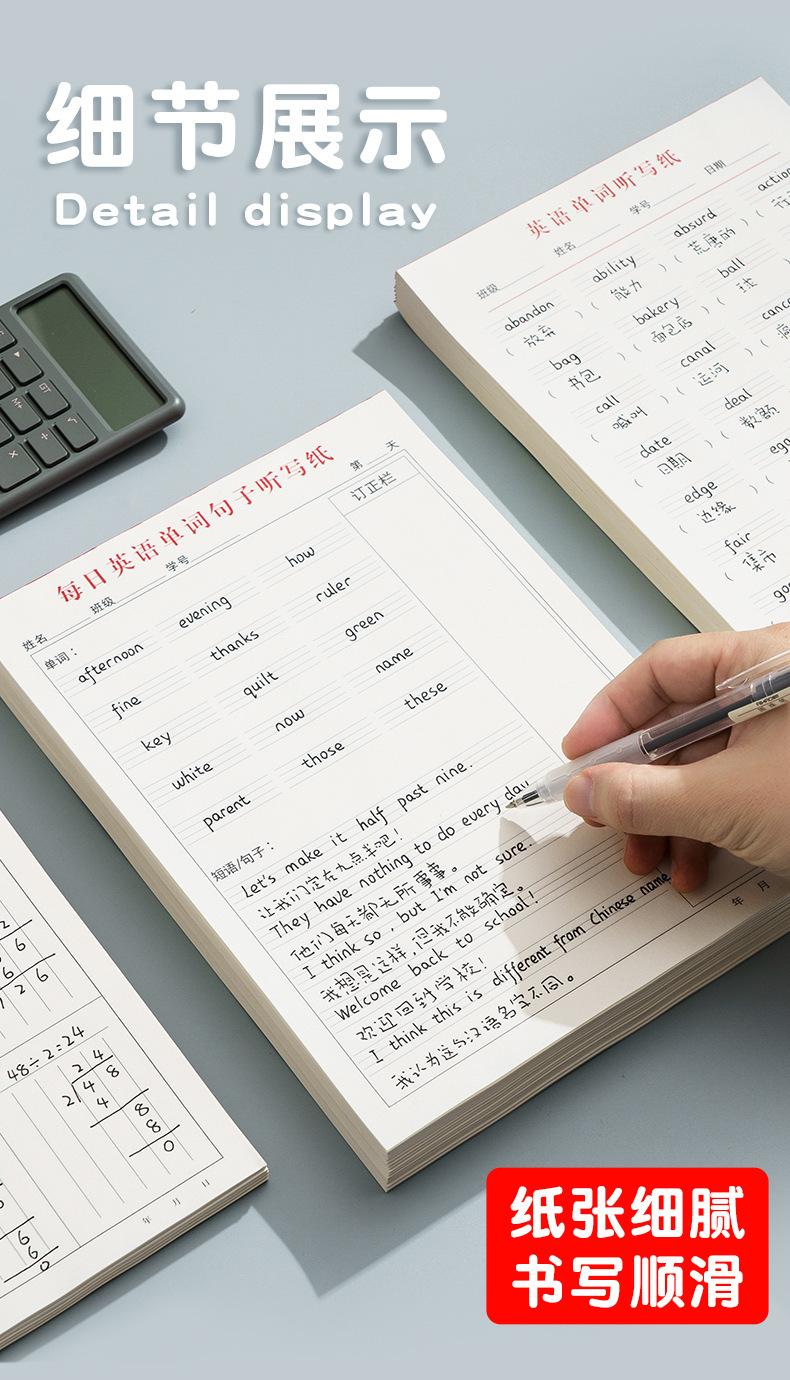 细节展示
Detail display
英语单词听写纸
班级 姓名 学号 日期
abandon ability absurd action
(放弃) (能力) (荒唐的)
bag bakery ball
(书包) (面包店) (球)
call canal
(喊叫) (运河)
date deal
(日期) (数额)
edge
(边缘)
fair
(集市
每日英语单词句子听写纸
第 天
姓名 班级 学号
订正栏
单词：
afternoon evening how
fine thanks ruler
key quilt green
white now name
parent those these
短语/句子：
Let's make it half past nine.
让我们定在九点半吧！
They have nothing to do every day
他们每天都无所事事。
I think so, but I'm not sure.
我想是这样，但我不能确定。
Welcome back to school!
欢迎回到学校！
I think this is different from Chinese name
我认为这与汉语名字不同。
年 月
48÷2=24
2 4
2 4 8
4
8
8
0
年 月 日
纸张细腻
书写顺滑